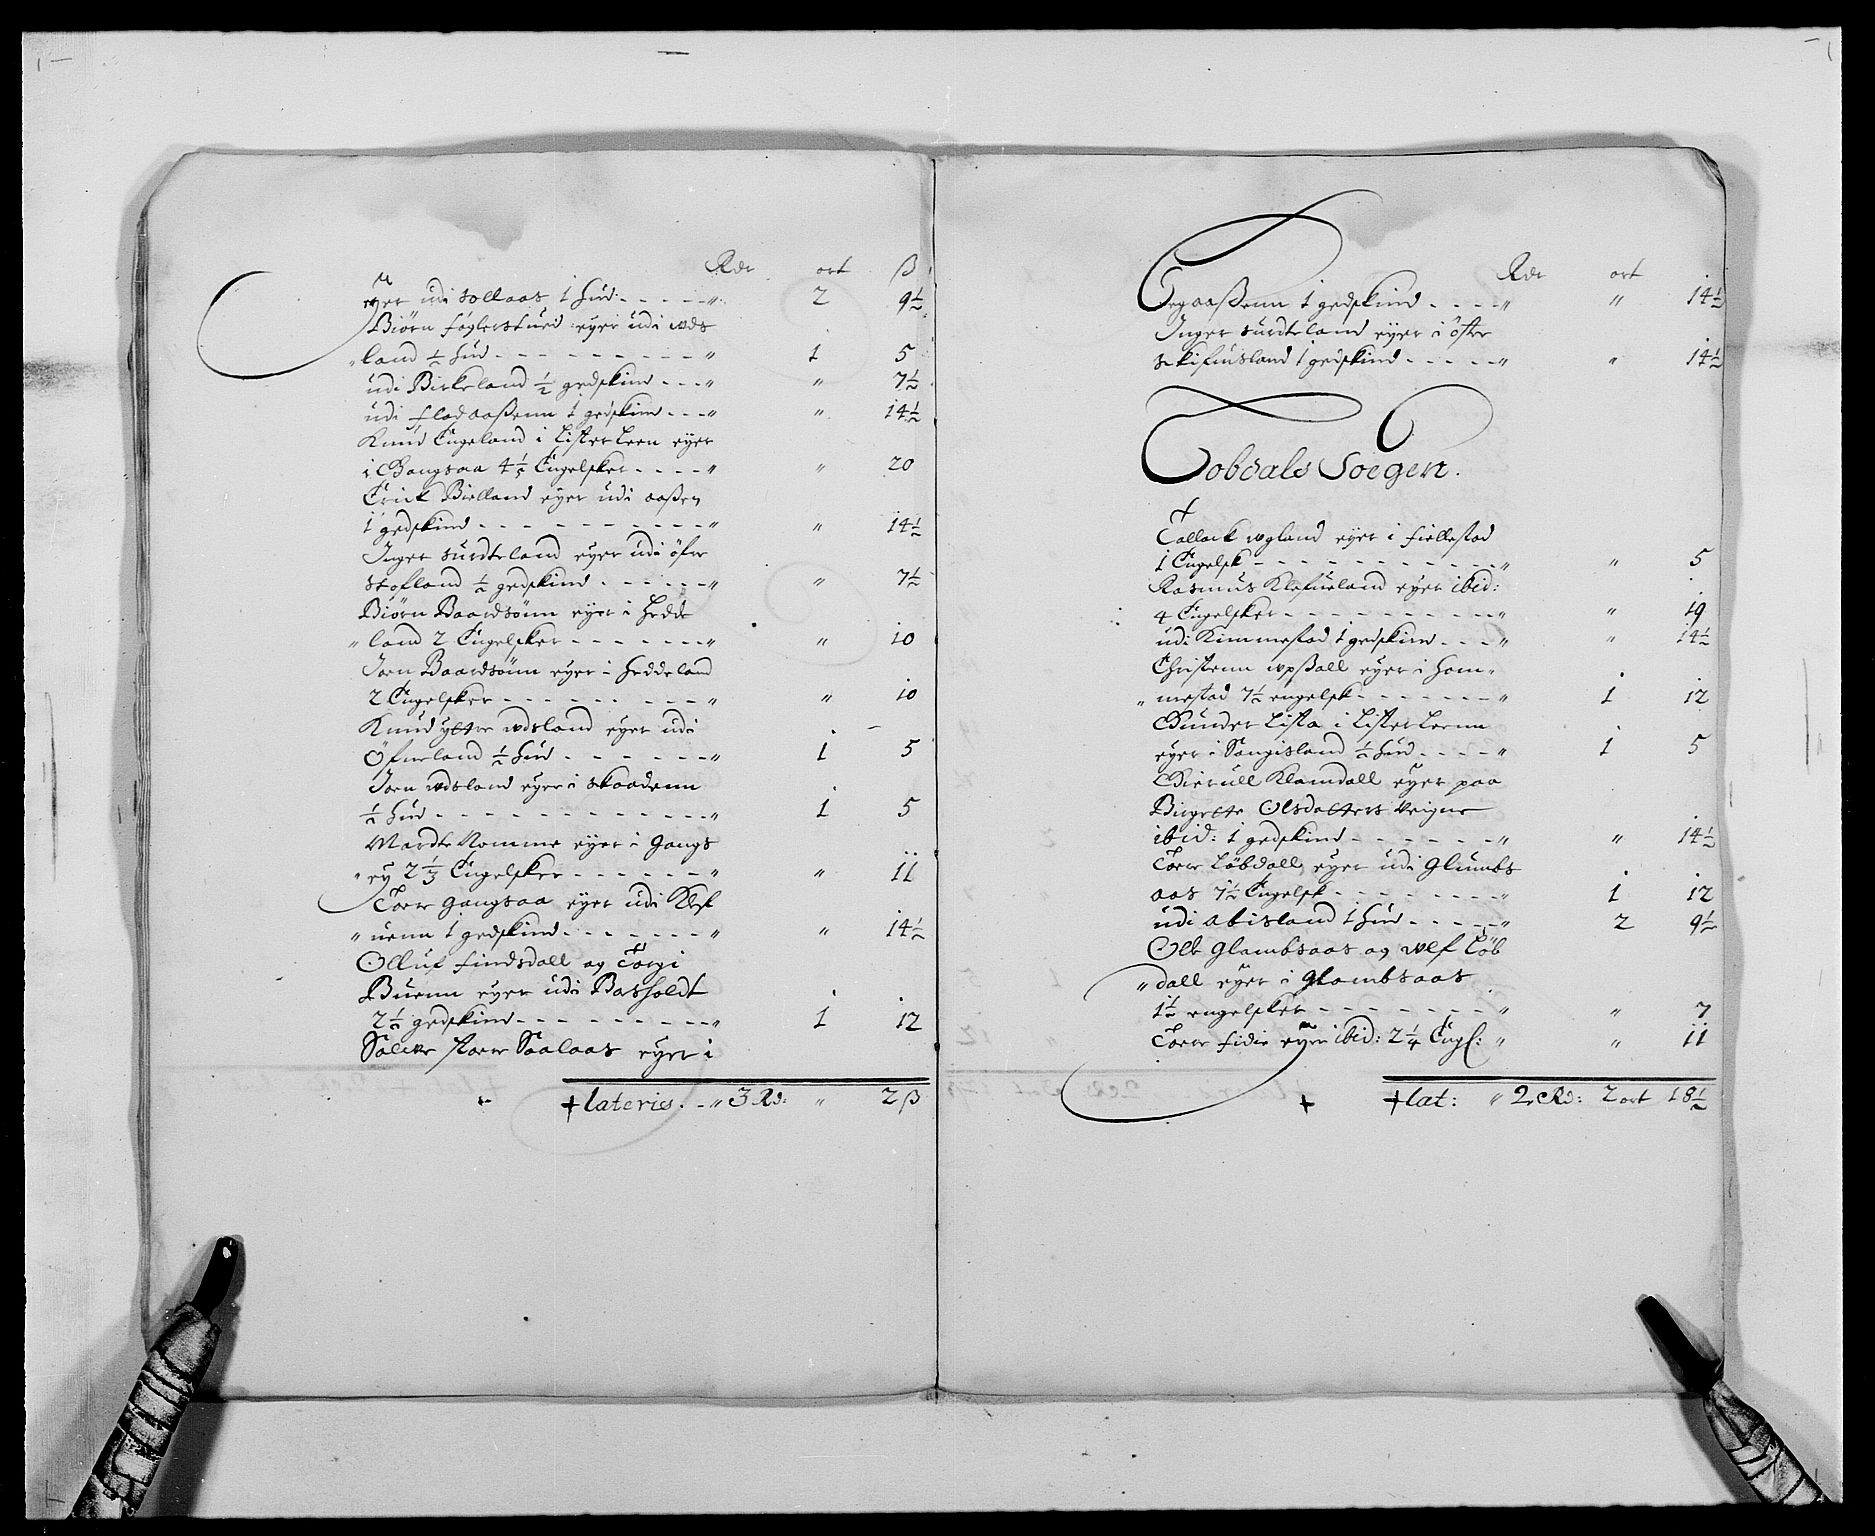 Rdr ort ß
eyer udi Sollaas 1 hud: - - - - - " 2 9½
Biørn foglerstued eyer udi wds
" land ½ hud - - - - - - - - - " 1 5
udi Birkeland ½ gedskind - - - " " 7½
udi flodaaßenn 1 gedskin - - - " " 14½
Knud Engeland i Lister Leen eyer
i Gangsaa 4⅕ Engelsker - - - - " " 20
Erick Bielland eyer udi aaßen
1 gedskind - - - - - - - - - " " 14½
Inger Surdteland eyer udi öfre
Stofland ½ gedskind - - - - - - " " 7½
Biørn Baardsönn eyer i Hedde
" land 2 Engelsker - - - - - - " " 10
Jorn Baardsönn eyer i Heddeland
2 Engelsker - - - - - - - - - " " 10
Knud yttre wdsland eyer udi
Öfneland ½ hud - - - - - - " 1 5
Jorn wdsland eyer i Skaadenn
½ hud - - - - - - - - - - - - " 1 5
Mardte Romme eyer i Gangs
" ey 2⅓ Engelsker - - - - - - " " 11
Torr gangsaa eyer udi Klef
" uenn 1 gedskind - - - - - - - " " 14½
Olluf findsdall og Torgi
Buenn eyer udi Basholdt
2½ gedskind - - - - - - - - - " 1 12
Salve store Saalaas eyer i
+ lateris. - " 3 Rd: " 2 ß
Rdr ort
Segaaßenn 1 gedskind - - - - " " 14½
Inger Surdteland eyer i öfre
Skifuisland 1 gedskind - - - - - " " 14½
Lobdals Soegen.
Tallack wgland eyer i fiellestad
1 Engelsk - - - - - - - - - - - " " 5
Rasmus Klefueland eyer ibid:
4 Engelsker - - - - - - - - - " " 19
udi Kimmestad 1 gedskind - - - " " 14½
Christenn wpßall eyer i hom-
" mestad 7½ engelsk - - - - - - - " 1 12
Gunder Lista i Lister Leenn
eyer i Sangisland ½ hud - - - - " 1 5
Gierull Klamdall eyer paa
Birgette Olsdatters Veigne
ibid: 1 gedskind - - - - - - - " " 14½
Torr Löbdall eyer udi Glumbs
aas 7½ Engelsk - - - - - - - - " 1 12
udi Abisland 1 hud - - - - - " 2 9½
Ole Glambsaas og Wlf Löb
" dall eyer i Glambsaas
1½ engelsker - - - - - - - - " " 7
Torr fidie eyer ibid: 2¼ Engl: " " 11
+
+ lat: " 2 Rd: 2 ort 18½